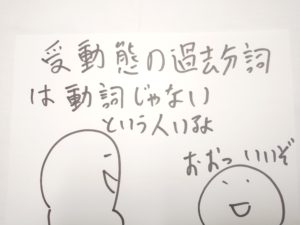 受動態の過去分詞
は動詞じゃない
という人いるよ
おおっいいぞ